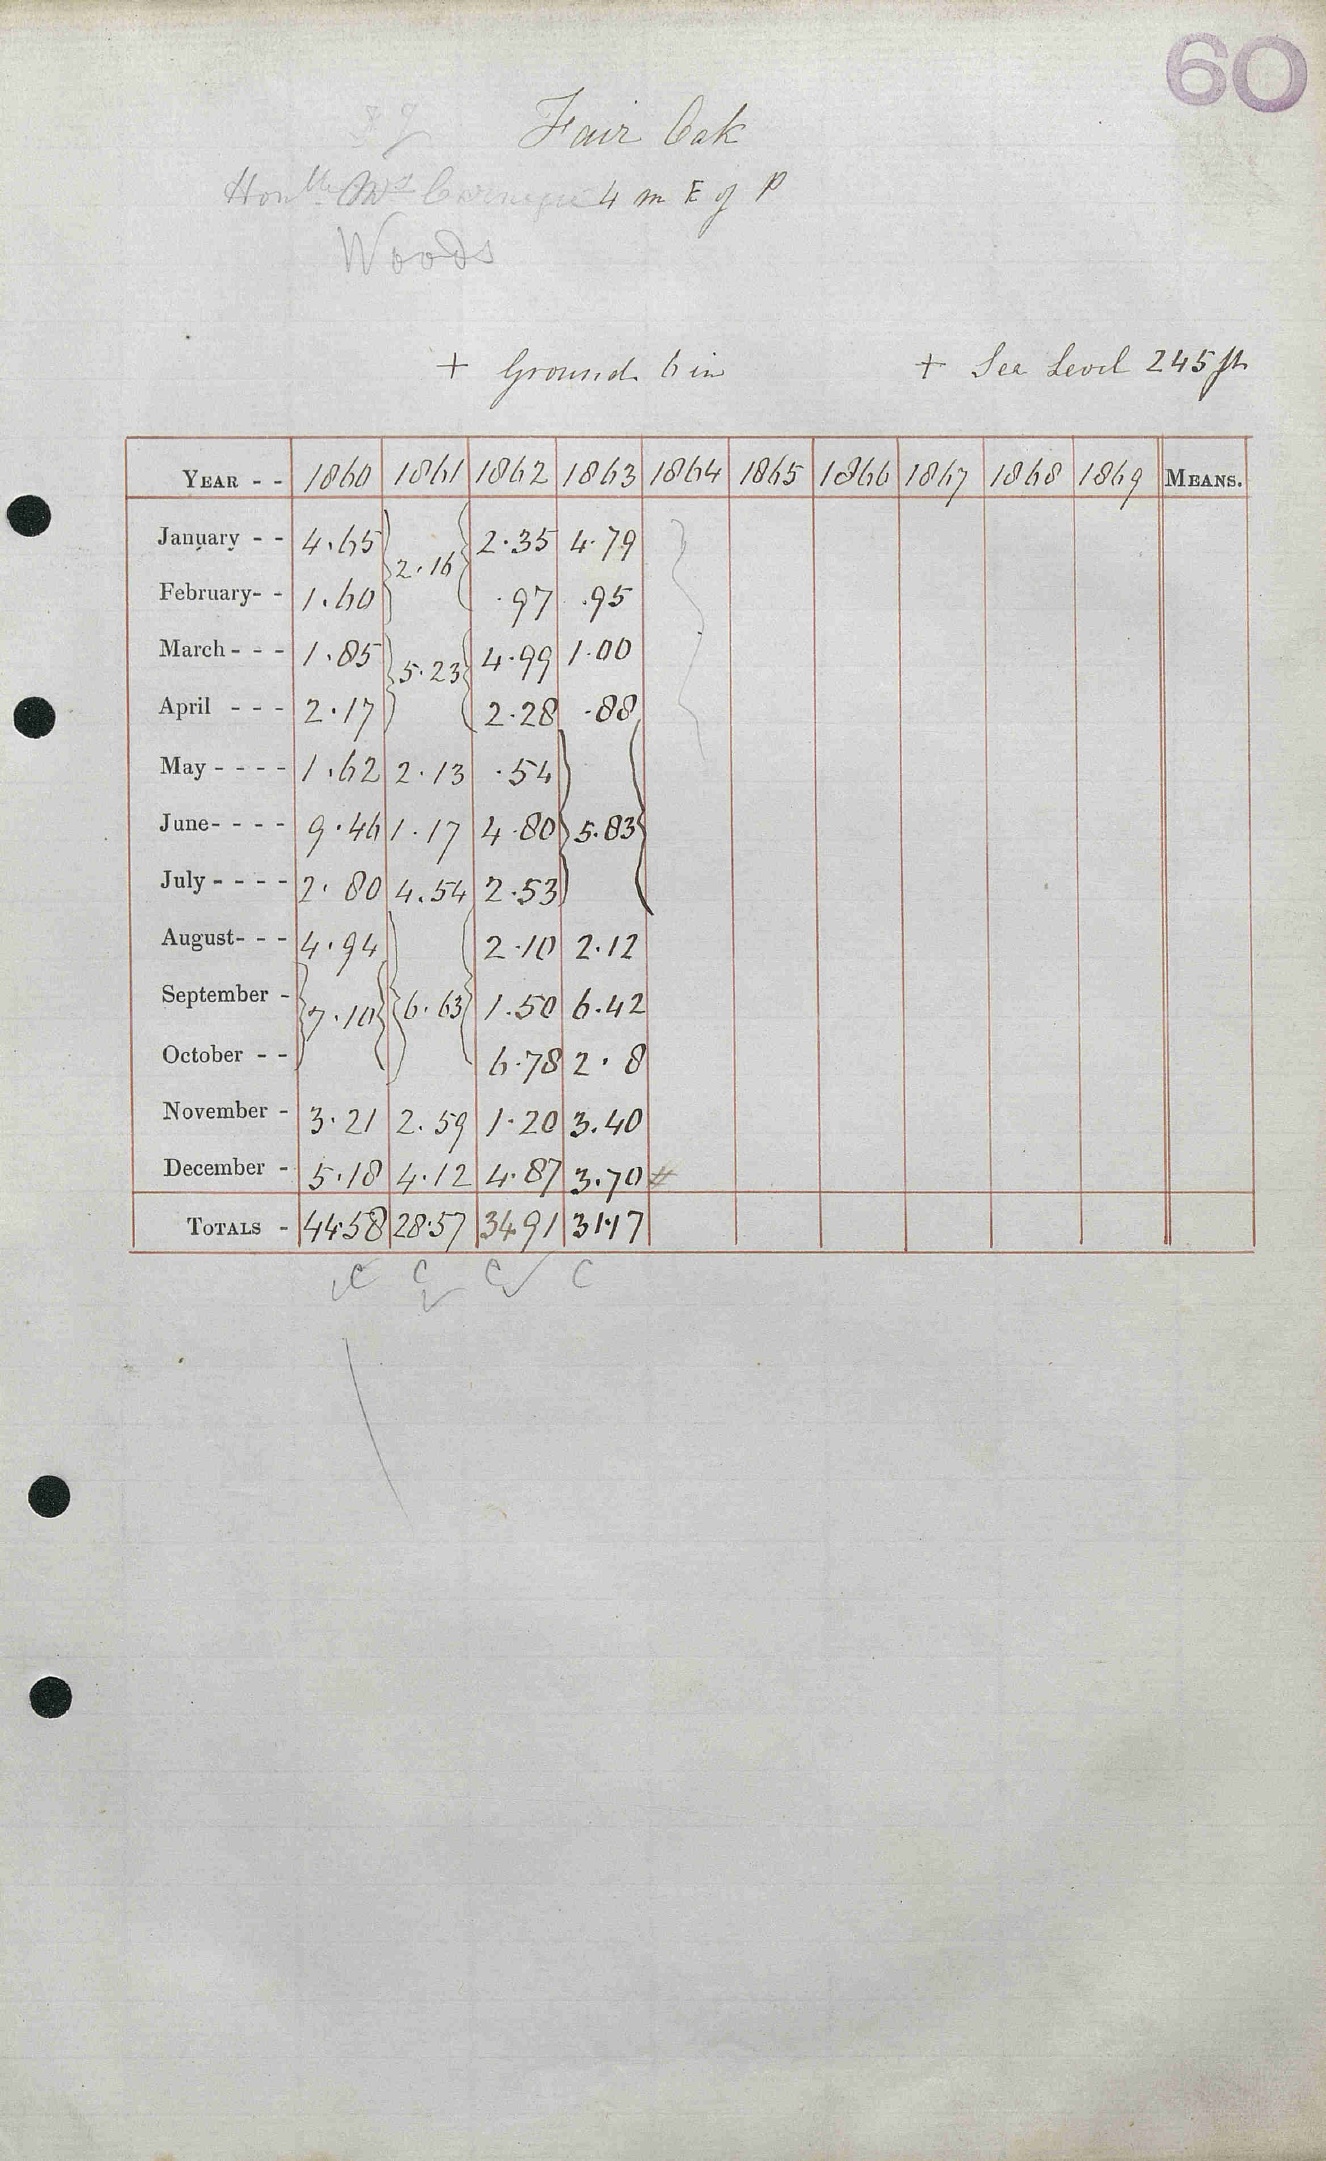 60
Fair Oak
Honble Mrs Carnegie 4 m E of P
Woods
+ Ground 6 in + Sea Level 245 ft
YEAR - - 1860 1861 1862 1863 1864 1865 1866 1867 1868 1869 MEANS.
January - - 4.65 2.35 4.79
2.16
February- - 1.60 .97 .95
March - - - 1.85 4.99 1.00
5.23
April - - - 2.17 2.28 .88
May - - - - 1.62 2.13 .54
June- - - - 9.46 1.17 4.80 5.83
July - - - - 2.80 4.54 2.53
August- - - 4.94 2.10 2.12
September - 7.10 6.63 1.50 6.42
October - - 6.78 2.8
November - 3.21 2.59 1.20 3.40
December - 5.18 4.12 4.87 3.70 #
TOTALS - 44.58 28.57 34.91 31.17
C C C C